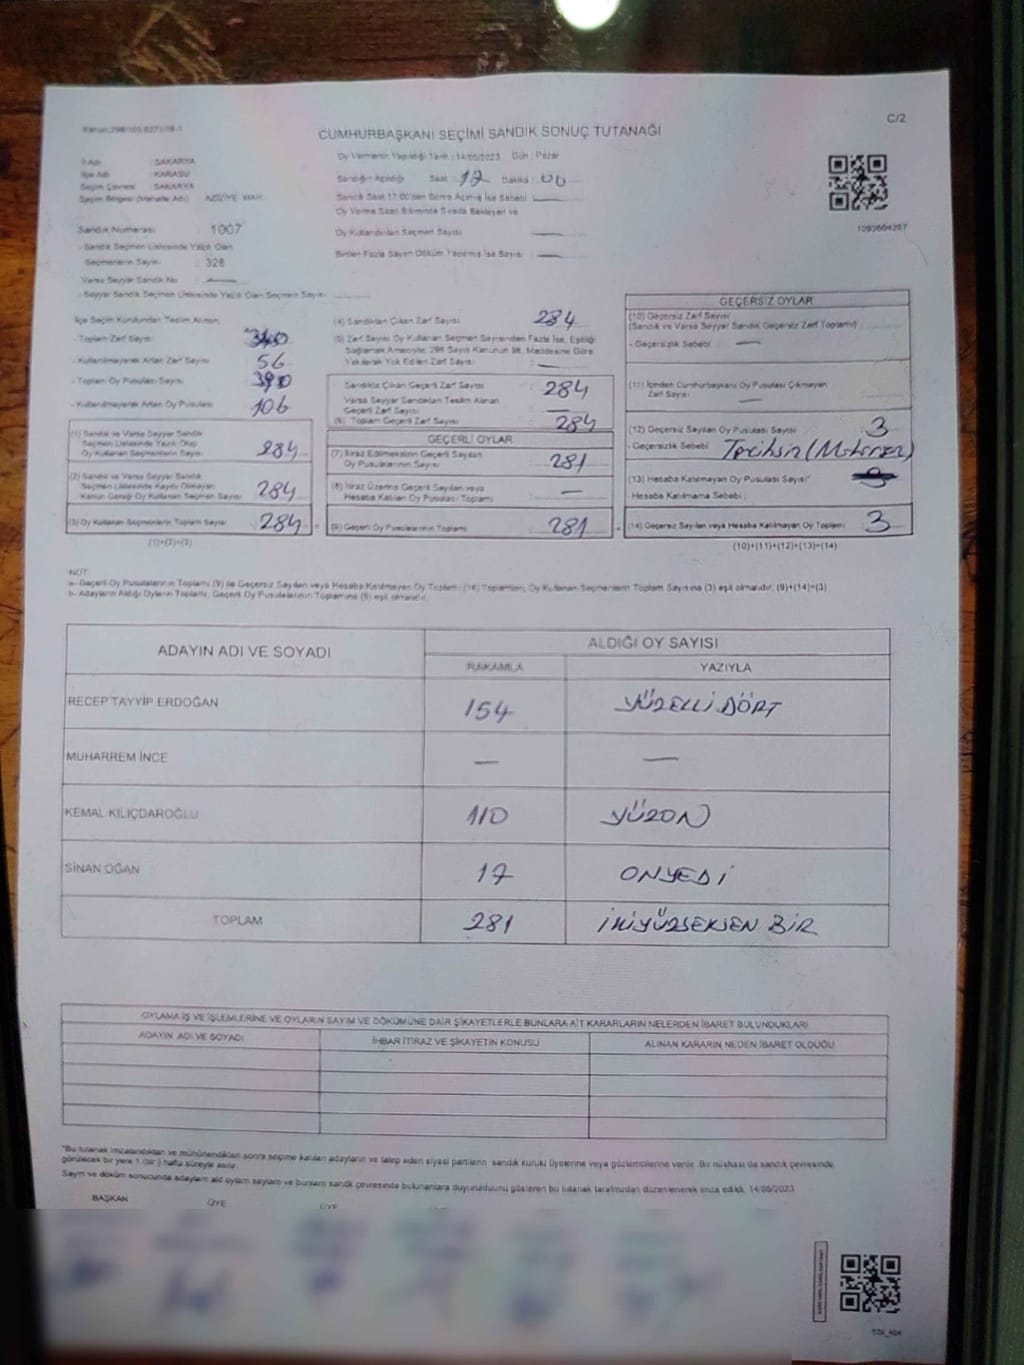 C/2
CUMHURBAŞKANI SEÇİMİ SANDIK SONUÇ TUTANAĞI
İl Adı : SAKARYA
İlçe Adı : KARASU
Seçim Çevresi : SAKARYA
Seçim Bölgesi (Mahalle Adı) : AZİZİYE MAH.
Sandık Numarası : 1007
- Sandık Seçmen Listesinde Yazılı Olan
Seçmenlerin Sayısı : 328
Varsa Seyyar Sandık No —
- Seyyar Sandık Seçmen Listesinde Yazılı Olan Seçmen Sayısı
Oy Vermenin Yapıldığı Tarih : 14/05/2023 Gün : Pazar
Sandığın Açıldığı Saat : 17 Dakika : 00
Sandık Saat 17:00'den Sonra Açılmış İse Sebebi —
Oy Verme Saati Bitiminde Sırada Bekleyen ve
Oy Kullandırılan Seçmen Sayısı —
Birden Fazla Sayım Döküm Yapılmış İse Sayısı : —
1093604267
İlçe Seçim Kurulundan Teslim Alınan;
- Toplam Zarf Sayısı
- Kullanılmayarak Artan Zarf Sayısı : 56
- Toplam Oy Pusulası Sayısı
- Kullanılmayarak Artan Oy Pusulası : 106
(1) Sandık ve Varsa Seyyar Sandık
Seçmen Listesinde Yazılı Olup
Oy Kullanan Seçmenlerin Sayısı 284
(2) Sandık ve Varsa Seyyar Sandık
Seçmen Listesinde Kayıtlı Olmayan
Kanun Gereği Oy Kullanan Seçmen Sayısı 284
(3) Oy Kullanan Seçmenlerin Toplam Sayısı 284
(1)+(2)=(3)
(4) Sandıktan Çıkan Zarf Sayısı 284
(5) Zarf Sayısı Oy Kullanan Seçmen Sayısından Fazla İse, Eşitliği
Sağlamak Amacıyla; 298 Sayılı Kanunun 98. Maddesine Göre
Yakılarak Yok Edilen Zarf Sayısı —
Sandıkta Çıkan Geçerli Zarf Sayısı 284
Varsa Seyyar Sandıktan Teslim Alınan
Geçerli Zarf Sayısı —
(6) Toplam Geçerli Zarf Sayısı 284
GEÇERLİ OYLAR
(7) İtiraz Edilmeksizin Geçerli Sayılan
Oy Pusulalarının Sayısı 281
(8) İtiraz Üzerine Geçerli Sayılan veya
Hesaba Katılan Oy Pusulası Toplamı —
(9) Geçerli Oy Pusulalarının Toplamı 281
GEÇERSİZ OYLAR
(10) Geçersiz Zarf Sayısı
(Sandık ve Varsa Seyyar Sandık Geçersiz Zarf Toplamı)
- Geçersizlik Sebebi : —
(11) İçinden Cumhurbaşkanı Oy Pusulası Çıkmayan
Zarf Sayısı —
(12) Geçersiz Sayılan Oy Pusulası Sayısı 3
- Geçersizlik Sebebi
(13) Hesaba Katılmayan Oy Pusulası Sayısı
- Hesaba Katılmama Sebebi :
(14) Geçersiz Sayılan veya Hesaba Katılmayan Oy Toplamı 3
(10)+(11)+(12)+(13)=(14)
NOT:
a- Geçerli Oy Pusulalarının Toplamı (9) ile Geçersiz Sayılan veya Hesaba Katılmayan Oy Toplamı (14) Toplamları, Oy Kullanan Seçmenlerin Toplam Sayısına (3) eşit olmalıdır, (9)+(14)=(3)
b- Adayların Aldığı Oyların Toplamı, Geçerli Oy Pusulalarının Toplamına (9) eşit olmalıdır.
ADAYIN ADI VE SOYADI ALDIĞI OY SAYISI
RAKAMLA YAZIYLA
RECEP TAYYİP ERDOĞAN 154 YÜZELLİ DÖRT
MUHARREM İNCE — —
KEMAL KILIÇDAROĞLU 110 YÜZON
SİNAN OĞAN 17 ONYEDİ
TOPLAM 281 İKİYÜZSEKSEN BİR
OYLAMA İŞ VE İŞLEMLERİNE VE OYLARIN SAYIM VE DÖKÜMÜNE DAİR ŞİKAYETLERLE BUNLARA AİT KARARLARIN NELERDEN İBARET BULUNDUKLARI
ADAYIN ADI VE SOYADI İHBAR İTİRAZ VE ŞİKAYETİN KONUSU ALINAN KARARIN NEDEN İBARET OLDUĞU
*Bu tutanak imzalandıktan ve mühürlendikten sonra seçime katılan adayların ve talep eden siyasi partilerin sandık kurulu üyelerine veya gözlemcilerine verilir. Bir nüshası da sandık çevresinde,
görülecek bir yere 1 (bir ) hafta süreyle asılır.
Sayım ve döküm sonucunda adayların ald oyların sayıları ve bunların sandık çevresinde bulunanlara duyurulduunu gösteren bu tutanak tarafımızdan düzenlenerek imza edildi. 14/05/2023
BAŞKAN ÜYE ÜYE